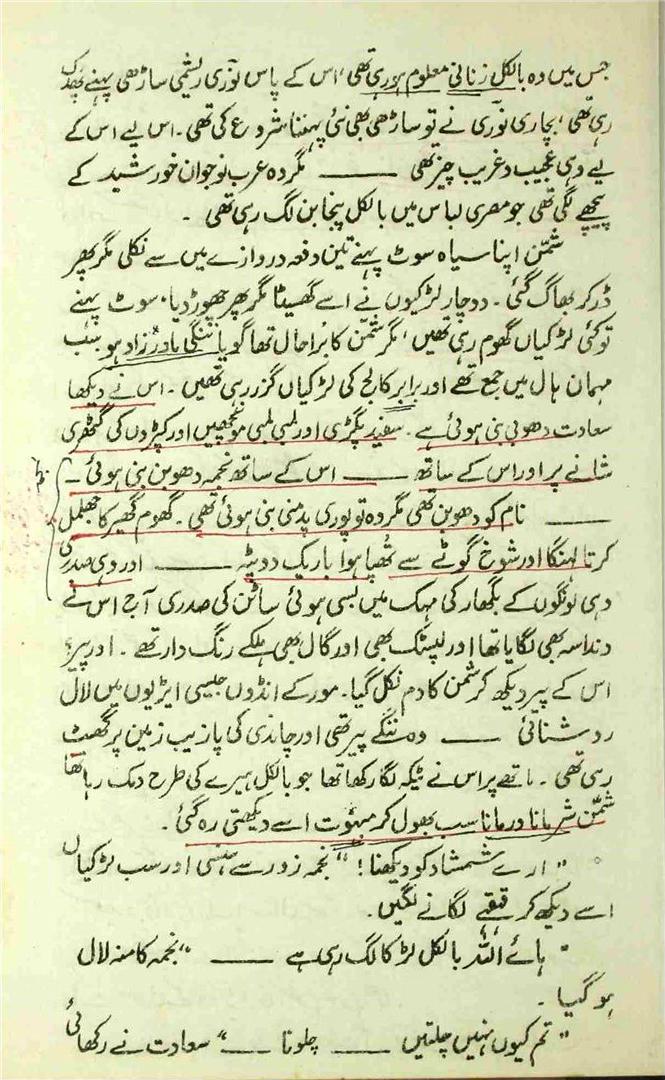 جس میں وہ بالکل زنانی معلوم ہو رہی تھی، اس کے پاس نوری ریشمی ساڑھی پہنے پھدک
رہی تھی، بچاری نوری نے تو ساڑھی بھی نئی پہننا شروع کی تھی۔ اس لیے اس کے
لیے وہی عجیب و غریب چیز تھی ——— مگر وہ عرب نوجوان خورشید کے
پیچھے لگی تھی جو مصری لباس میں بالکل پنجابن لگ رہی تھی ۔
شمّن اپنا سیاہ سوٹ پہنے تین دفعہ دروازے میں سے نکلی مگر پھر
ڈر کر بھاگ گئی۔ دو چار لڑکیوں نے اسے گھسیٹا مگر پھر چھوڑ دیا، سوٹ پہنے
تو کئی لڑکیاں گھوم رہی تھیں، مگر شمّن کا بُرا حال تھا گویا ننگی مادر زاد ہو سب
مہمان ہال میں جمع تھے اور برابر کالج کی لڑکیاں گزر رہی تھیں۔ اس نے دیکھا
سعادت دھوبی بنی ہوئی ہے۔ سفید پگڑی اور لمبی لمبی مونچھیں اور کپڑوں کی گٹھری
شانے پر اور اس کے ساتھ ——— اس کے ساتھ نجمہ دھوبن بنی ہوئی ۔
——— نام کو دھوبن تھی مگر وہ تو پوری پدمنی بنی ہوئی تھی۔ گھوم گھیر کا جھلمل
کرتا لہنگا اور شوخ گوٹے سے تُھپا ہوا باریک دوپٹہ ——— اور وہی صدری
وہی لونگوں کے بگھار کی مہک میں بسی ہوئی ساٹن کی صدری آج اس نے
دنداسہ بھی لگایا تھا اور لپسٹک بھی اور گال بھی ہلکے رنگ دار تھے ۔ اور پیر؟
اس کے پیر دیکھ کر شمّن کا دم نکل گیا۔ مور کے انڈوں جیسی ایڑیوں میں لال
روشنائی ——— وہ ننگے پیر تھی اور چاندی کی پازیب زمین پر گھسٹ
رہی تھی ۔ ماتھے پر اس نے ٹیکہ لگا رکھا تھا جو بالکل ہیرے کی طرح دمک رہا تھا
شمّن شرمانا ورمانا سب بھول کر مبہوت اسے دیکھتی رہ گئی ۔
" ارے شمشاد کو دیکھنا! " نجمہ زور سے ہنسی اور سب لڑکیاں
اسے دیکھ کر قہقہے لگانے لگیں۔
" ہائے اللہ بالکل لڑکا لگ رہی ہے ——— " نجمہ کا منہ لال
ہو گیا ۔
" تم کیوں نہیں چلتیں ——— چلو نا —— " سعادت نے رکھائی